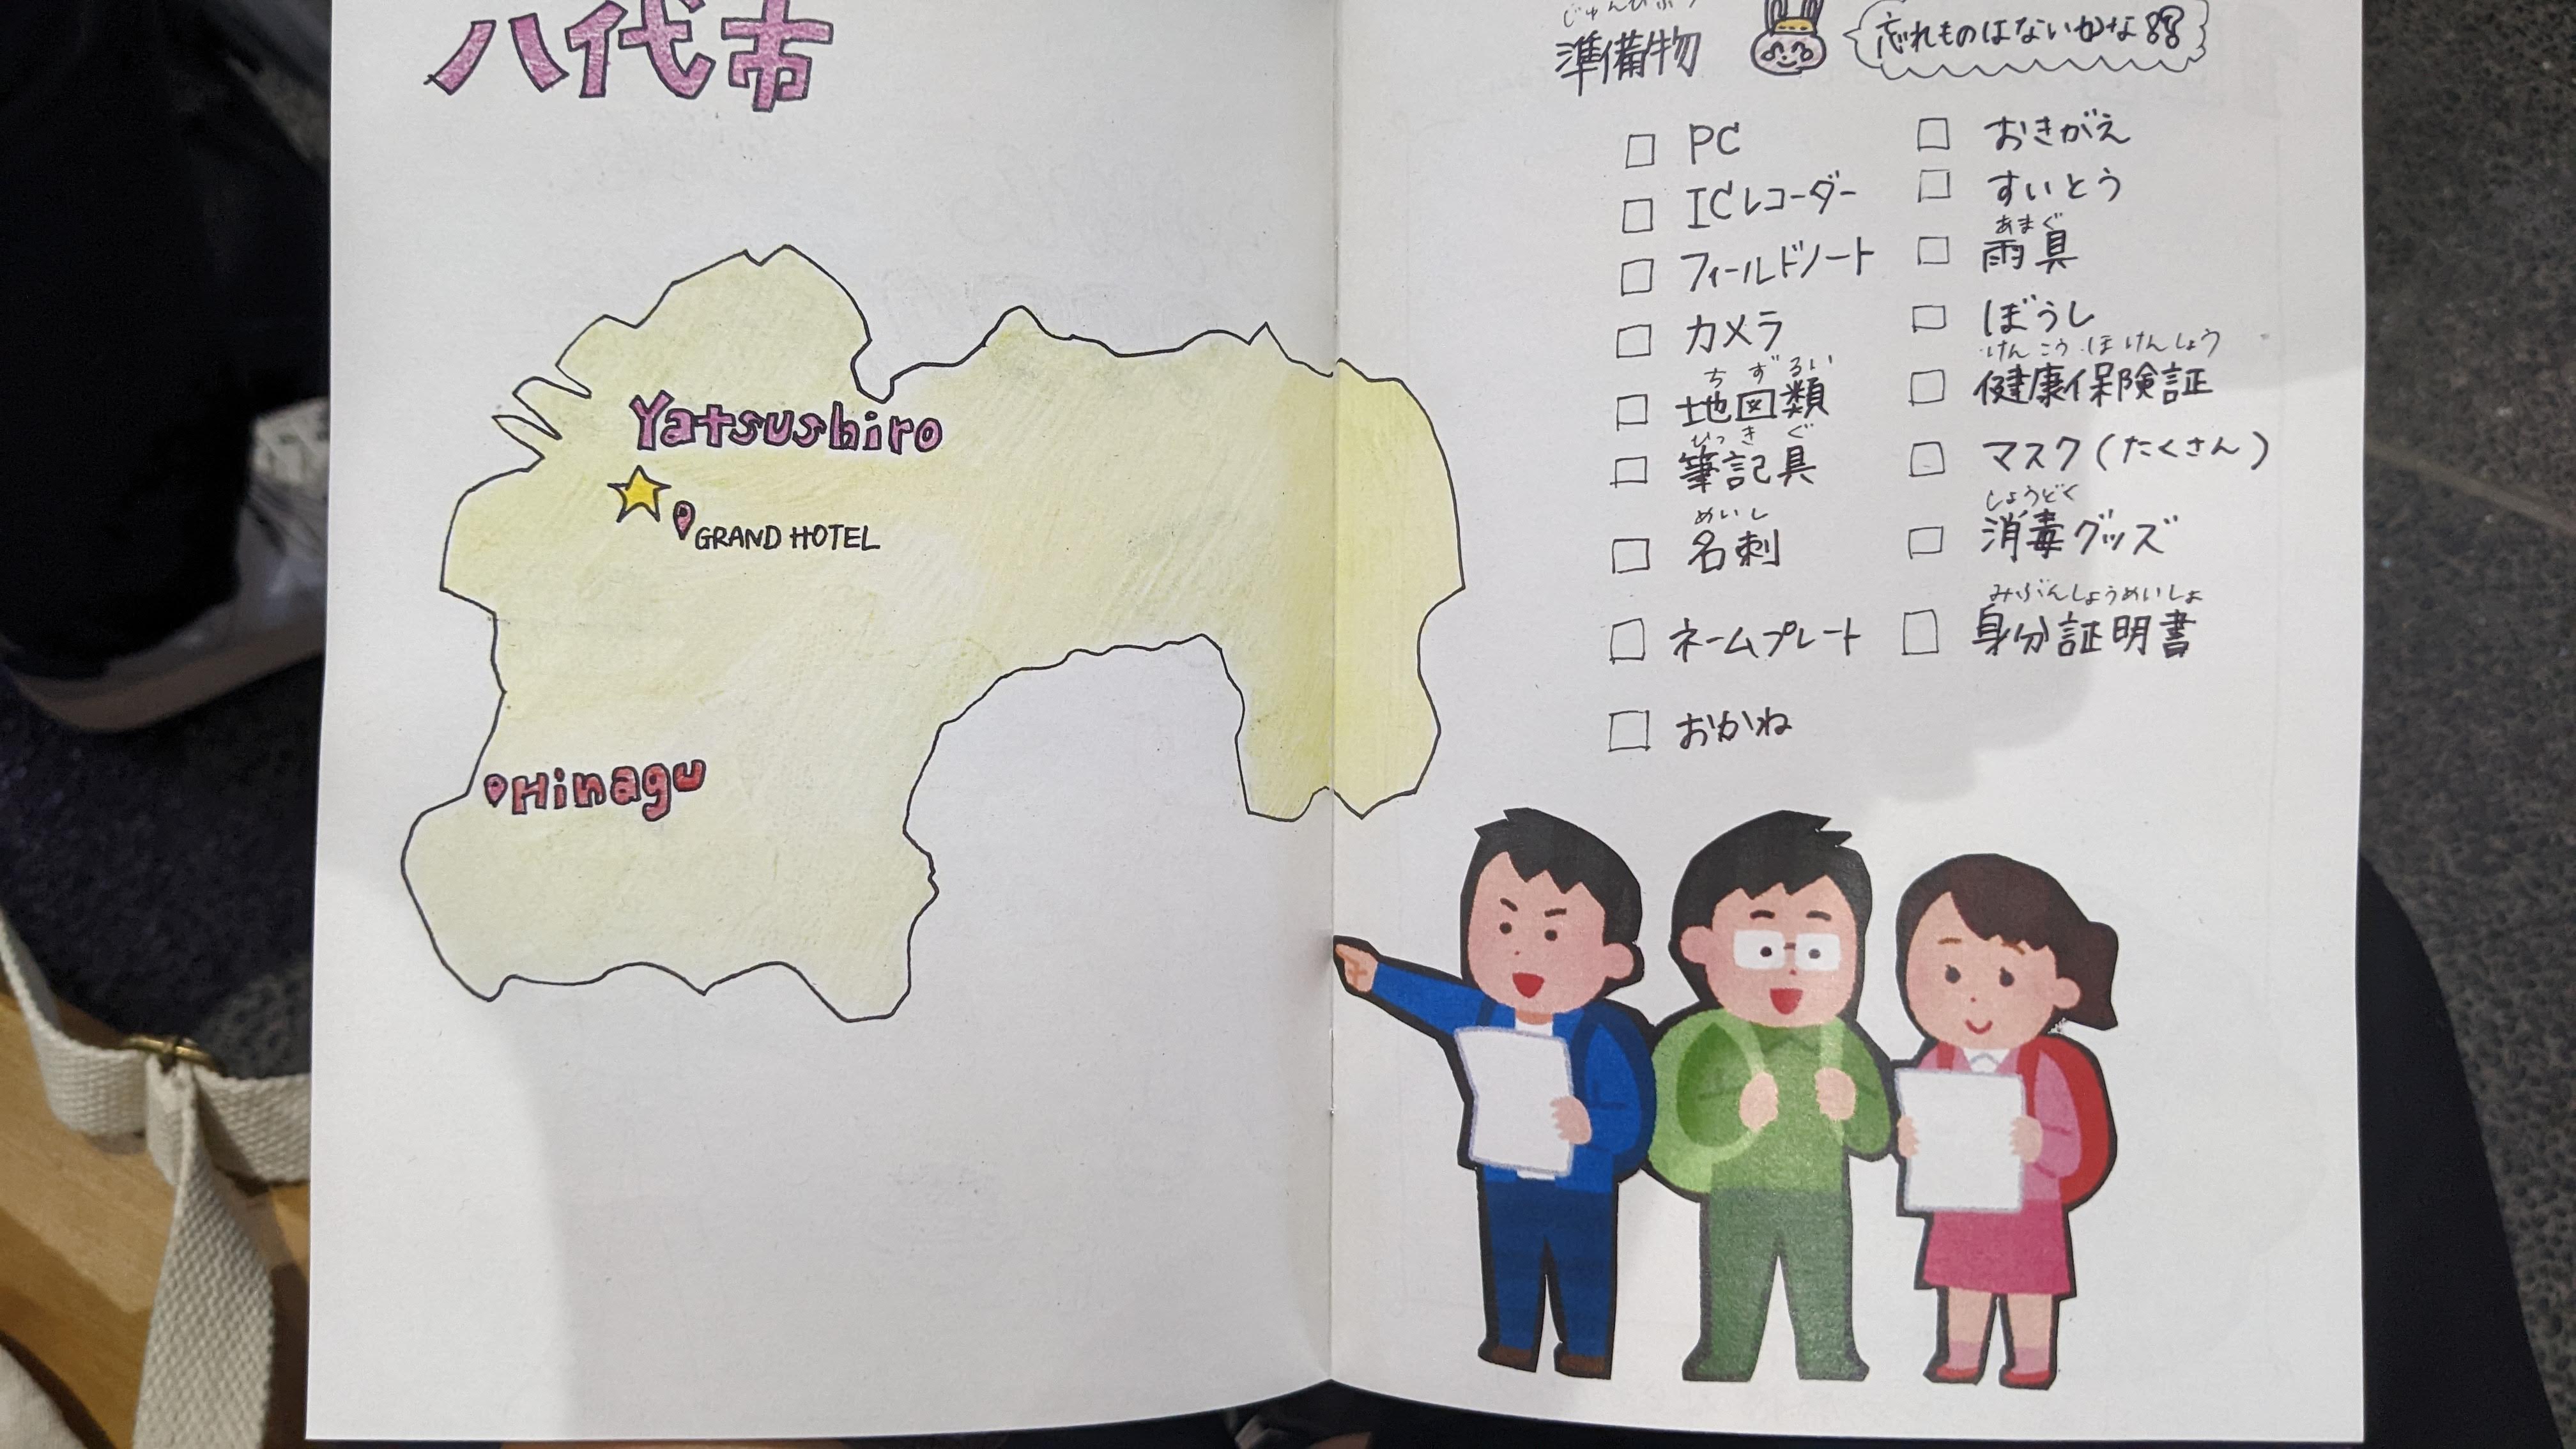 八代市
Yatsushiro
GRAND HOTEL
Hinagu
じゅんびぶつ
準備物
忘れものはないかな??
PC
ICレコーダー
フィールドノート
カメラ
ちずるい
地図類
ひっきぐ
筆記具
めいし
名刺
ネームプレート
おかね
おきがえ
すいとう
あまぐ
雨具
ぼうし
けんこうほけんしょう
健康保険証
マスク(たくさん)
しょうどく
消毒グッズ
みぶんしょうめいしょ
身分証明書